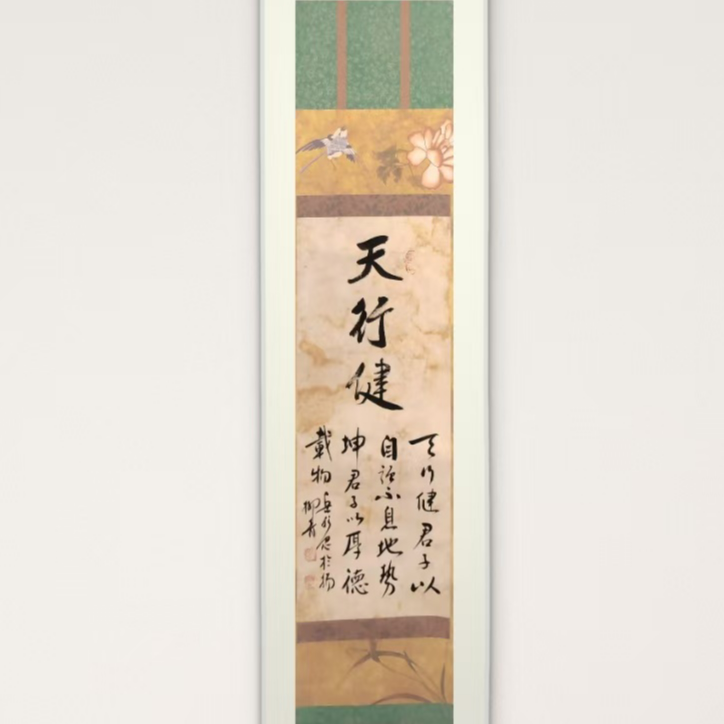 天行健
天行健君子以
自強不息地勢
坤君子以厚德
載物